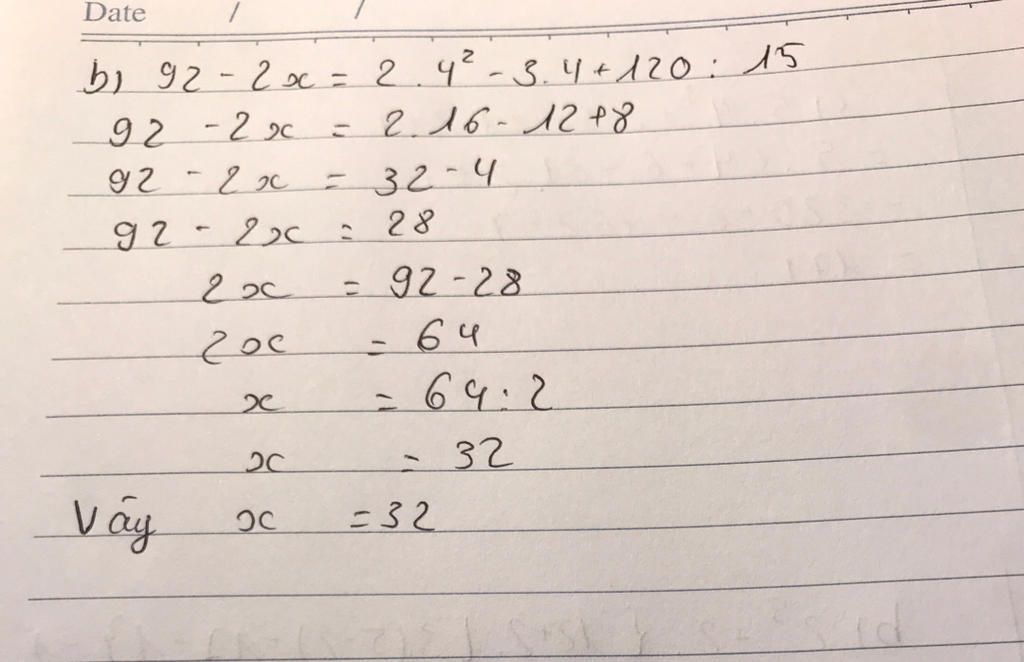 Date / /
b) 92 - 2x = 2 . 4² - 3 . 4 + 120 : 15
92 - 2x = 2 . 16 - 12 + 8
92 - 2x = 32 - 4
92 - 2x = 28
2x = 92 - 28
2x = 64
x = 64 : 2
x = 32
Vậy x = 32